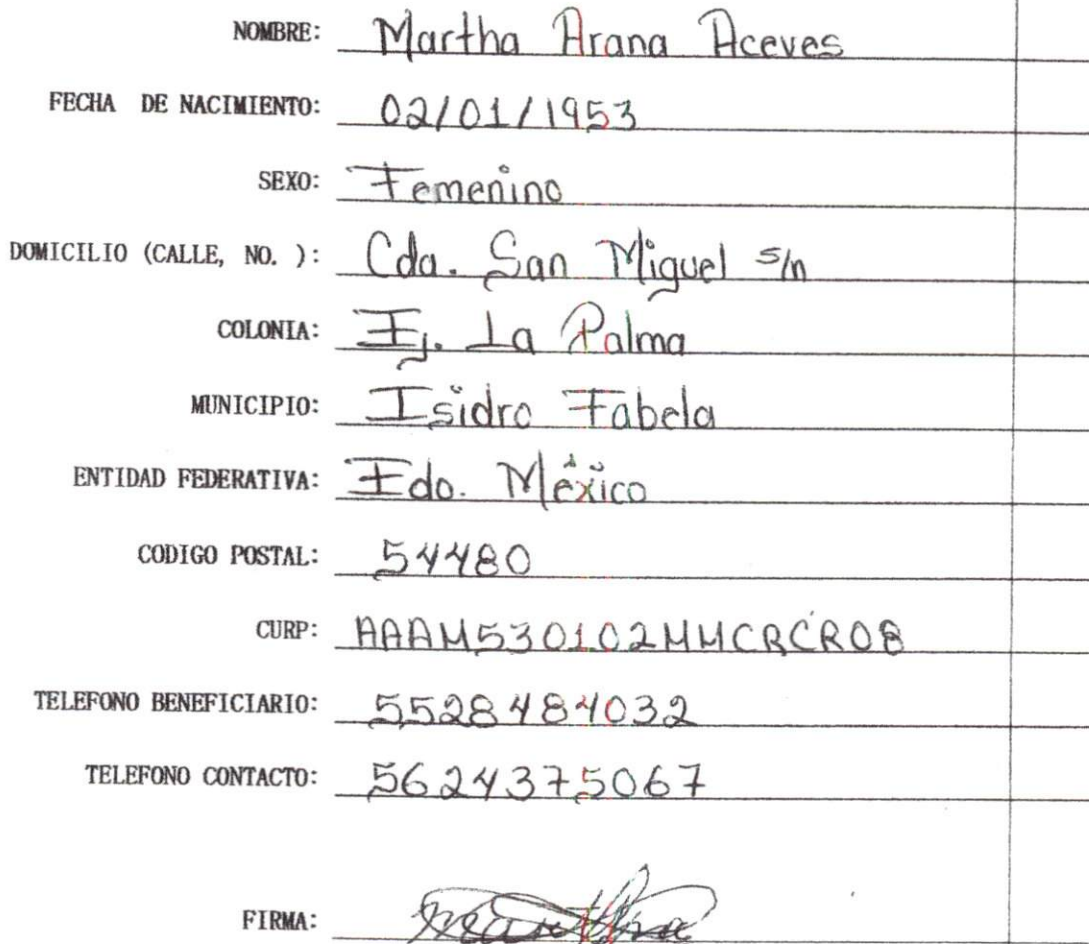 NOMBRE: Martha Arana Aceves
FECHA DE NACIMIENTO: 02/01/1953
SEXO: Femenino
DOMICILIO (CALLE, NO. ): Cda. San Miguel s/n
COLONIA: Ej. La Palma
MUNICIPIO: Isidro Fabela
ENTIDAD FEDERATIVA: Edo. México
CODIGO POSTAL: 54480
CURP: AAAM530102MMCRCR08
TELEFONO BENEFICIARIO: 5528484032
TELEFONO CONTACTO: 5624375067
FIRMA: Martha